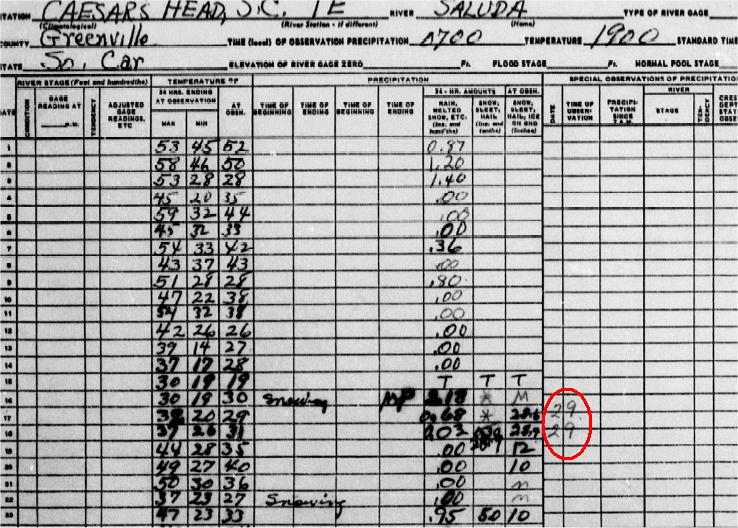 STATION CAESARS HEAD, S.C. 1E RIVER SALUDA TYPE OF RIVER GAGE
(Climatological) (River Station - if different) (Name)
COUNTY Greenville TIME (local) OF OBSERVATION PRECIPITATION 0700 TEMPERATURE 1900 STANDARD TIME
STATE So, Car ELEVATION OF RIVER GAGE ZERO Ft. FLOOD STAGE Ft. NORMAL POOL STAGE
RIVER STAGE (Feet and hundredths) TEMPERATURE °F PRECIPITATION SPECIAL OBSERVATIONS OF PRECIPITA
DATE CONDITION GAGE READING AT M. TENDENCY ADJUSTED GAGE READINGS, ETC 24 HRS. ENDING AT OBSERVATION MAX MIN AT OBSN. TIME OF BEGINNING TIME OF ENDING TIME OF BEGINNING TIME OF ENDING 24 - HR. AMOUNTS RAIN, MELTED SNOW, ETC. (Ins. and hundths) SNOW, SLEET, HAIL (Ins. and tenths) AT OBSN. SNOW, SLEET, HAIL, ICE ON GND (Inches) DATE TIME OF OBSERVATION PRECIPITATION SINCE 7 A.M. RIVER STAGE TENDENCY
1 53 45 52 0.87
2 58 46 50 1.20
3 53 28 28 1.40
4 45 20 35 .00
5 59 32 44 .00
6 45 32 33 .00
7 54 33 42 .36
8 43 37 43 .00
9 51 28 28 .80
10 47 22 38 .00
11 54 32 38 .00
12 42 26 26 .00
13 39 14 27 .00
14 37 17 28 .00
15 30 19 19 T T T
16 30 19 30 Snowing .18 * M
17 38 20 29 0.68 * 28.6 29
18 37 26 31 2.03 28.9 29
19 44 28 35 .00 12
20 49 27 40 .00 10
21 50 30 36 .00 M
22 37 23 27 Snowing .00 M
23 47 23 33 .95 80 10